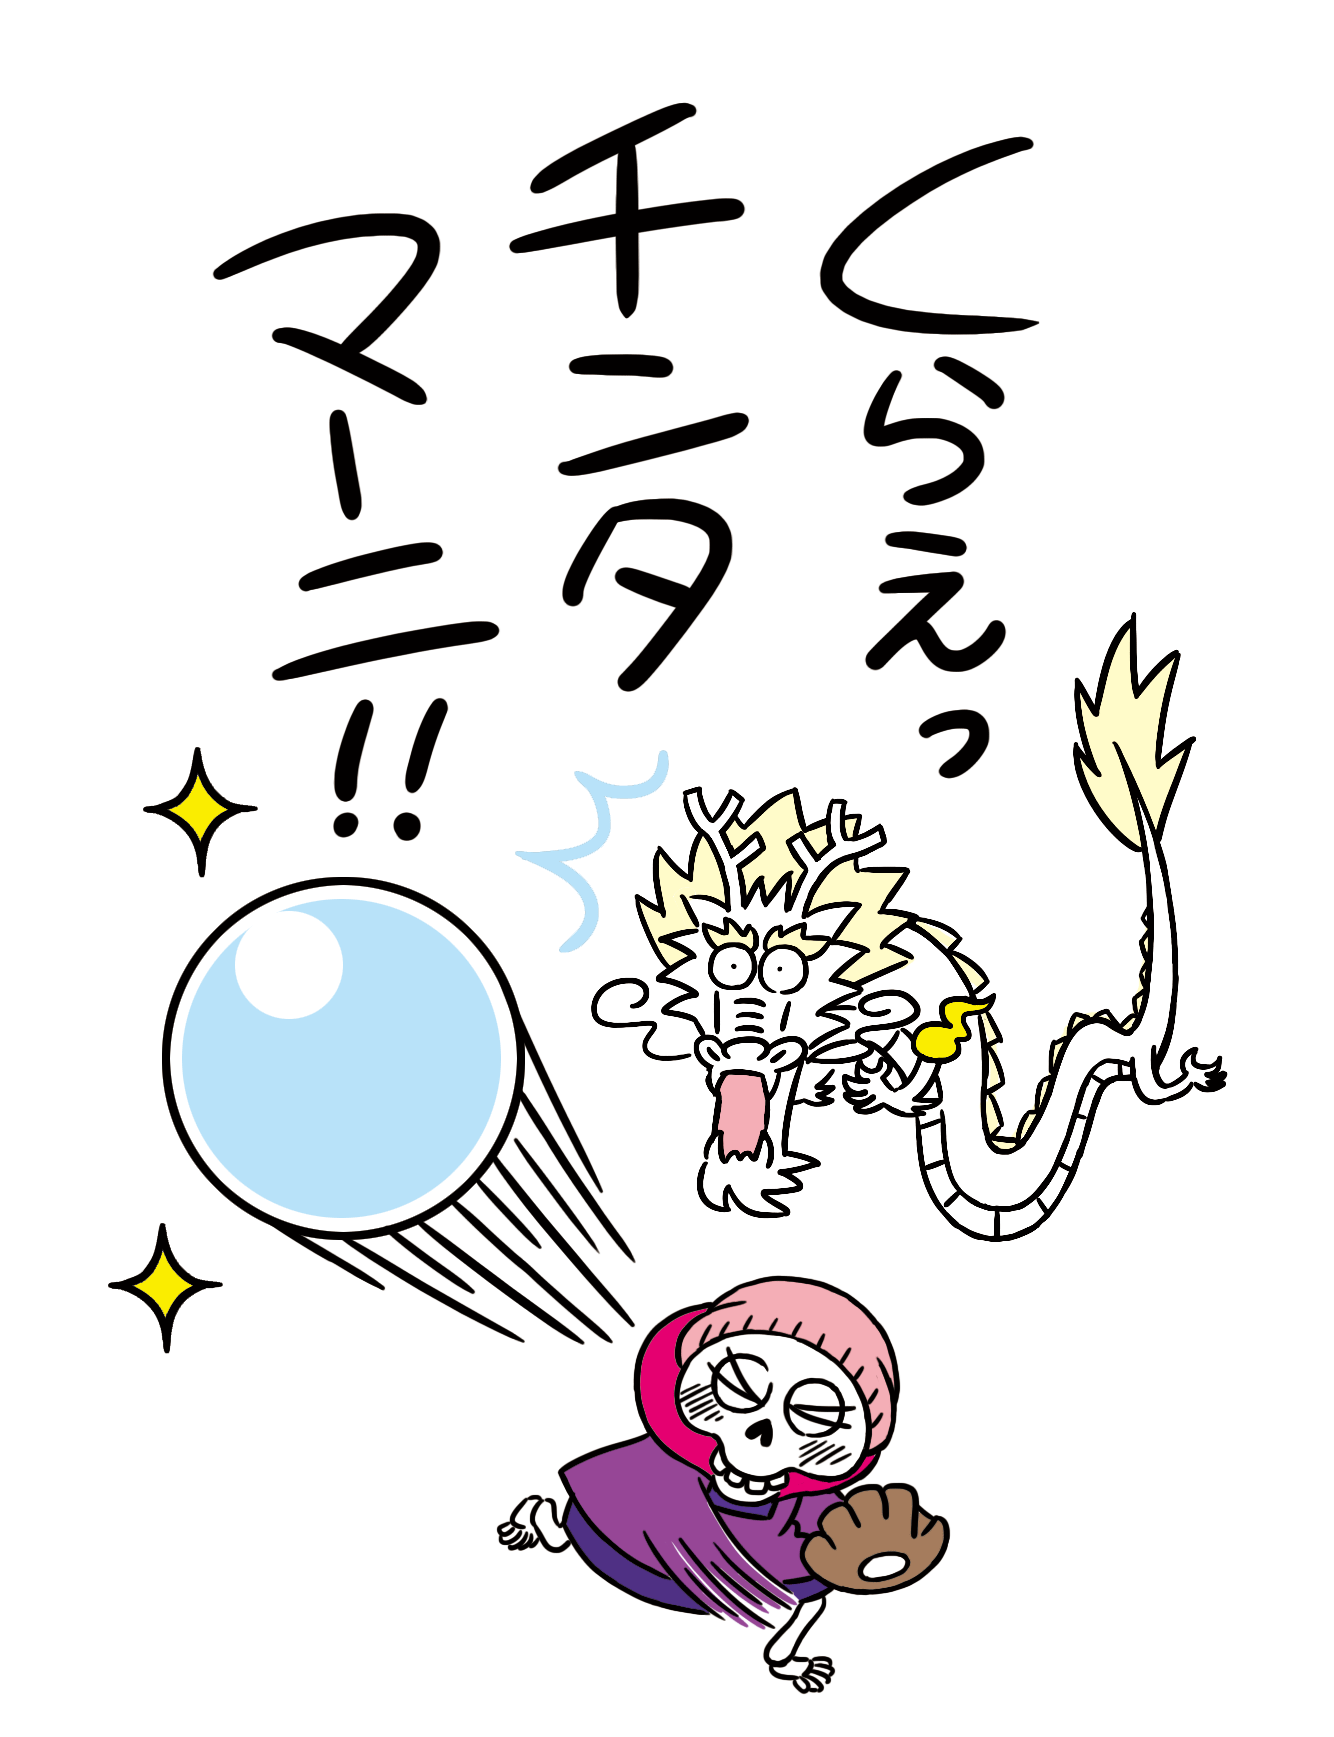 くらえっ
チンタ
マーニ!!